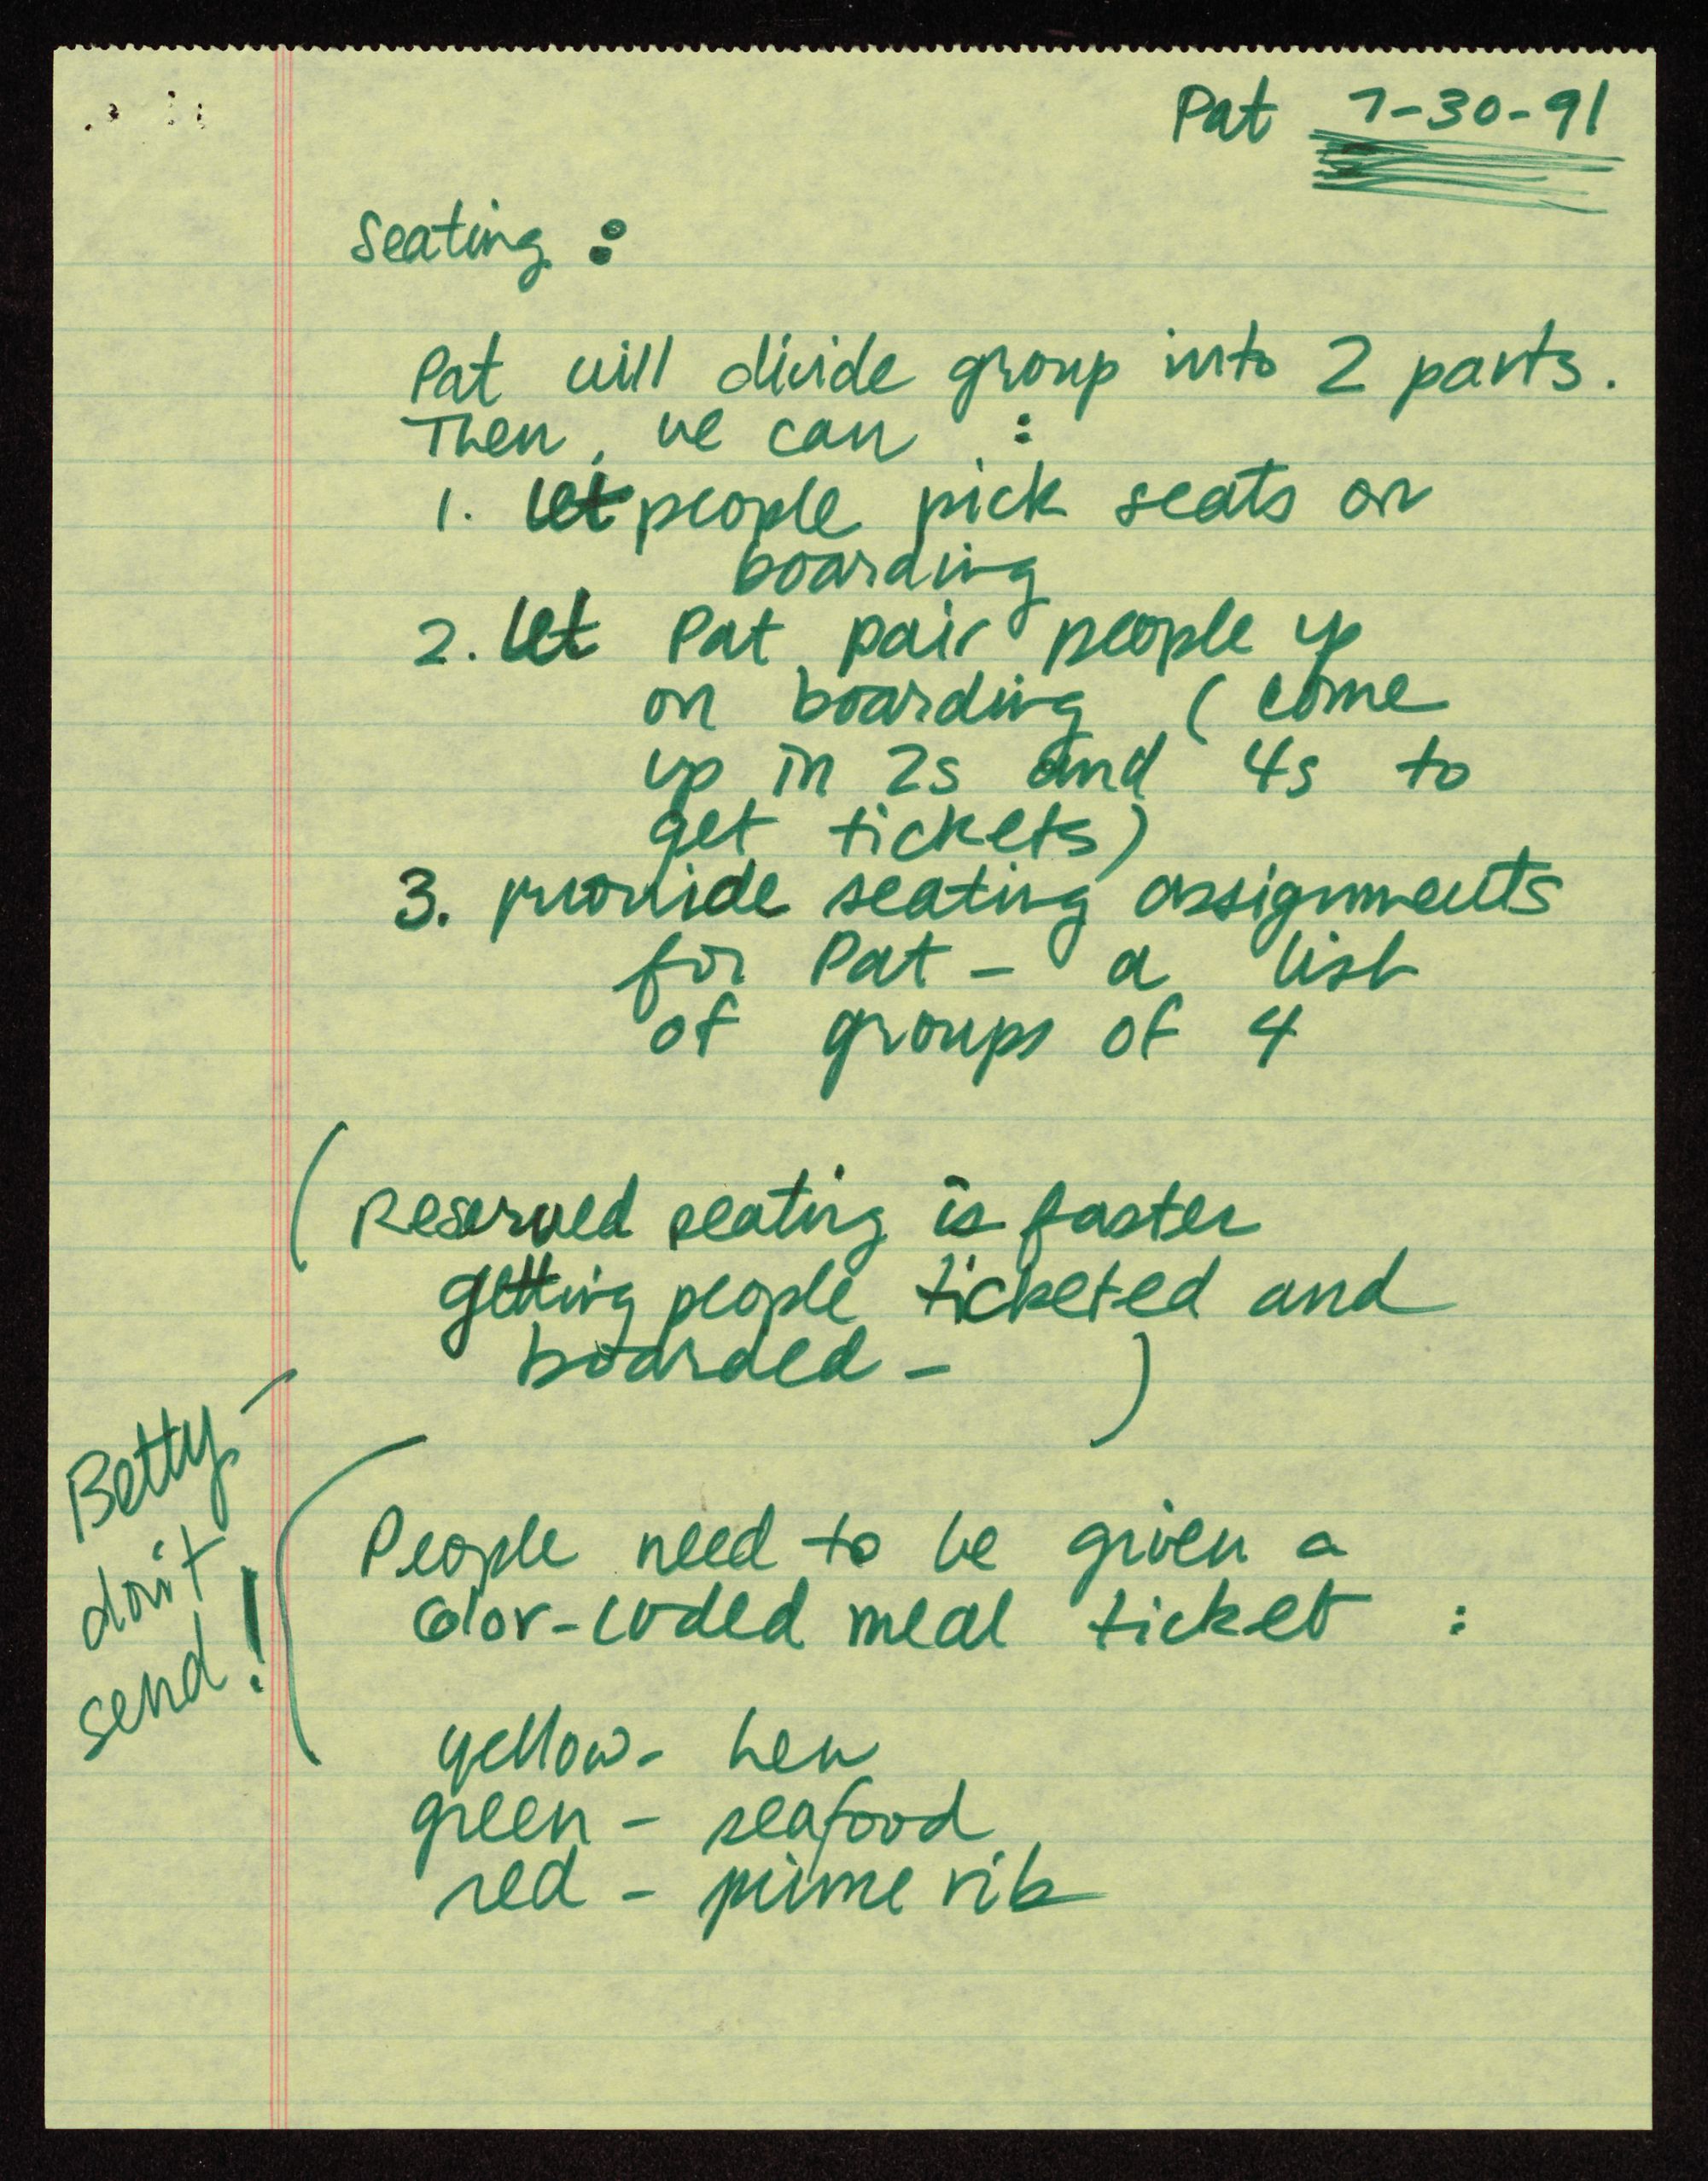 Pat 7-30-91
Seating :
Pat will divide group into 2 parts.
Then, we can :
1. let people pick seats on
boarding
2. let Pat pair people up
on boarding (come
up in 2s and 4s to
get tickets)
3. provide seating assignments
for Pat - a list
of groups of 4
(Reserved seating is faster
getting people ticketed and
boarded - )
Betty -
don't
send!
(People need to be given a
color-coded meal ticket :
yellow - hen
green - seafood
red - prime rib